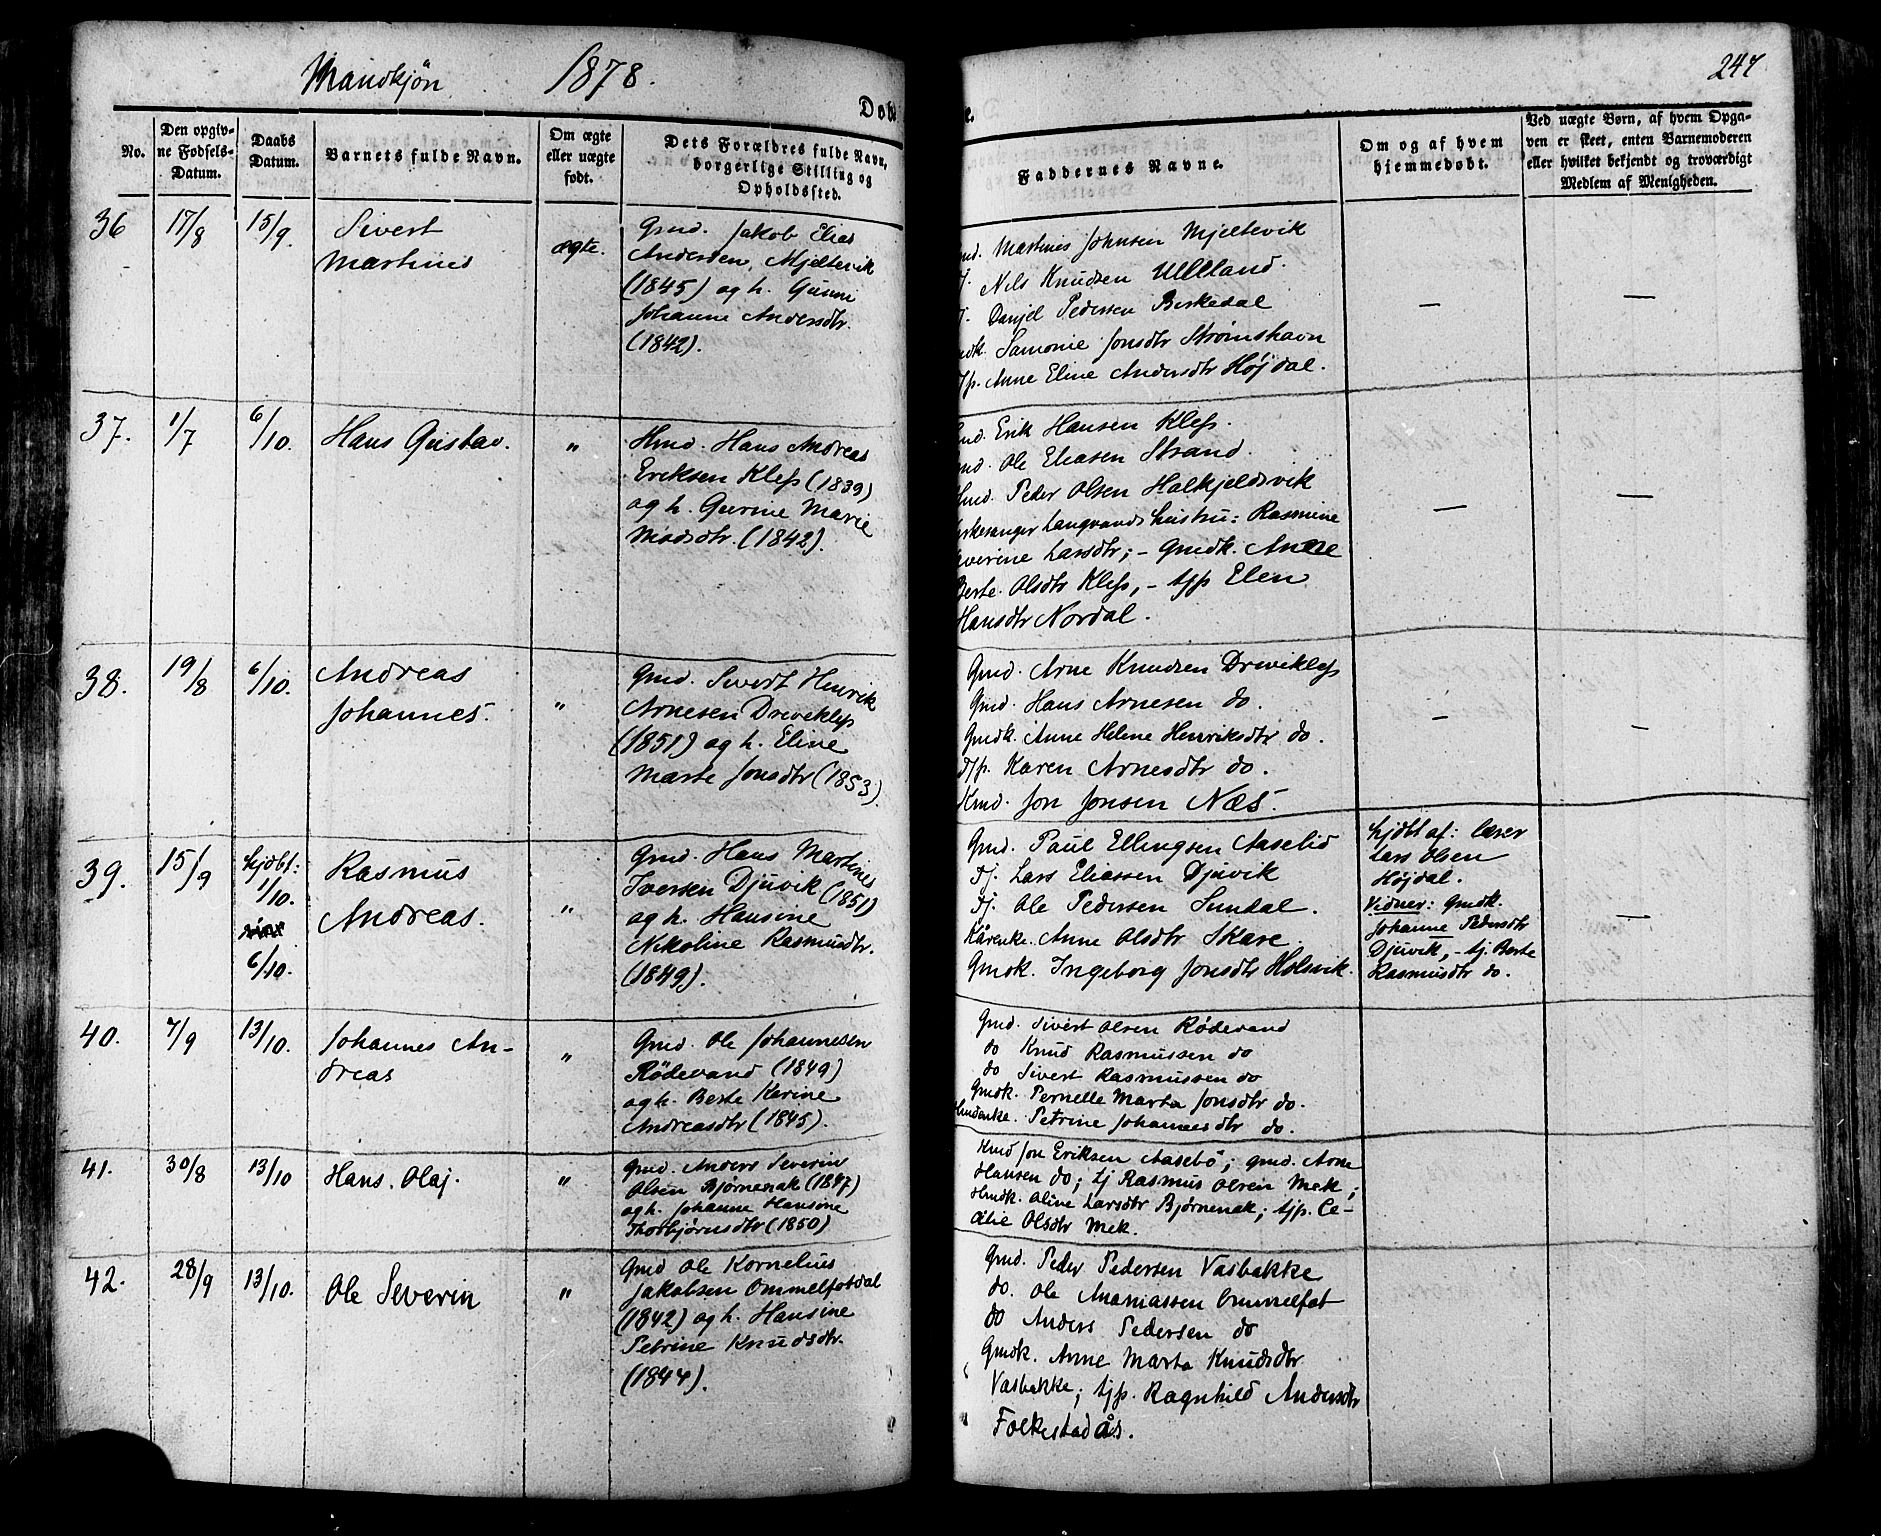 Mandkjøn 1878.
247
Døbte.
No.
Den opgiv-
ne Fødsels-
Datum.
Daabs
Datum.
Barnets fulde Navn.
Om ægte
eller uægte
født.
Dets Forældres fulde Navn,
borgerlige Stilling og
Opholdssted.
Faddernes Navne.
Om og af hvem
hjemmedøbt.
Ved uægte Børn, af hvem Opga-
ven er skeet, enten Barnemoderen
eller hvilket bekjendt og troværdigt
Medlem af Menigheden.
36 17/8 15/9.
Sivert
Martinus
ægte.
Gmd. Jakob Elias
Andersen, Mjeltevik
(1845) og h. Gunni
Johanne Andersdtr.
(1842).
Gmd. Martines Johnsen Mjeltevik
Tj. Nils Knudsen Ulleland.
Tj. Danjel Pedersen Birkedal
Gmdk. Samonie Jonsdtr Strømshavn
Tjp. Anne Eline Andersdtr Højdal.
— —
37. 1/7 6/10.
Hans Gustav.
"
Hmd. Hans Andreas
Eriksen Kleps (1839)
og h. Gurine Marie
Madsdtr. (1842).
Gmd. Erik Hansen Kleps.
Gmd. Ole Eliasen Strand.
Hmd. Peder Olsen Halkjeldsvik
Kirkesanger Langvands hustru: Rasmine
Severine Larsdtr; - Gmdk. Anne
Berte Olsdtr Kleps, - tjp Elen
Hansdtr Nordal.
— —
38. 19/8 6/10.
Andreas
Johannes.
"
Gmd. Sivert Henrik
Arnesen Drivekleps
(1851) og h. Eline
Marte Jonsdtr (1853).
Gmd. Arne Knudsen Drivekleps
Gmd. Hans Arnesen do.
Gmdk. Anne Helene Henriksdtr do.
Tjp. Karen Arnesdtr do.
Kmd. Jon Jonsen Næs.
— —
39. 15/9
hjdbt:
1/10.
6/10.
Rasmus
Andreas.
"
Gmd. Hans Martines
Iversen Djuvik (1851)
og h. Hansine
Nikoline Rasmusdtr.
(1849).
Gmd. Paul Ellingsen Aaselid
Tj. Lars Eliassen Djuvik
Tj. Ole Pedersen Sundal.
Kårenke. Anne Olsdtr Skare.
Gmdk. Ingeborg Jonsdtr Holsvik.
hjdbt af: lærer
Lars Olsen
Højdal.
Vidner: Gmdk.
Johanne Pedersdtr
Djuvik, - tj. Berte
Rasmusdtr do.
—
40. 7/9 13/10.
Johannes An-
dreas
"
Gmd. Ole Johannesen
Rødevand (1849)
og h. Berte Karine
Andreasdtr (1845).
Gmd. Sivert Olsen Rødevand
do Knud Rasmussen do
do Sivert Rasmussen do
Gmdk. Pernelle Marta Jonsdtr do.
Hmdenke. Petrine Johannesdtr do.
41. 30/8 13/10
Hans Olaj.
"
Gmd. Anders Severin
Olsen Bjørnenak (1847)
og h. Johanne Hansine
Thorbjørnsdtr (1850)
Kmd Jon Eriksen Aasebö; gmd. Arne
Hansen do; tj Rasmus Olsen Mek;
Hmdk. Oline Larsdtr Bjørnenak; tjp. Ce-
cilie Olsdtr Mek.
42. 28/9 13/10.
Ole Severin
"
Gmd Ole Kornelius
Jakobsen Ommelfotdal
(1842) og h. Hansine
Petrine Knudsdtr.
(1844).
Gmd. Peder Pedersen Vasbakke
do. Ole Ananiassen Ommelfot
do Anders Pedersen do
Gmdk. Anne Marta Knudsdtr
Vasbakke; tjp. Ragnhild Andersdtr
Folkestadås.